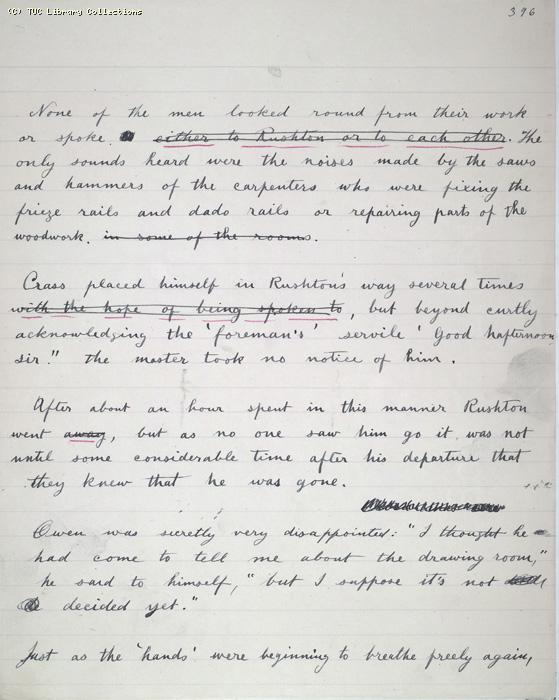 (C) TUC Library Collections
396
None of the men looked round from their work
or spoke either to Rushton or to each other. The
only sounds heard were the noises made by the saws
and hammers of the carpenters who were fixing the
frieze rails and dado rails or repairing parts of the
woodwork. in some of the rooms.
Crass placed himself in Rushton's way several times
with the hope of being spoken to, but beyond curtly
acknowledging the 'foreman's' servile 'Good hafternoon
sir!" the master took no notice of him.
After about an hour spent in this manner Rushton
went away, but as no one saw him go it was not
until some considerable time after his departure that
they knew that he was gone.
Owen was secretly very disappointed: "I thought he
had come to tell me about the drawing room,"
he said to himself, "but I suppose it's not
decided yet."
Just as the 'hands' were beginning to breathe freely again,